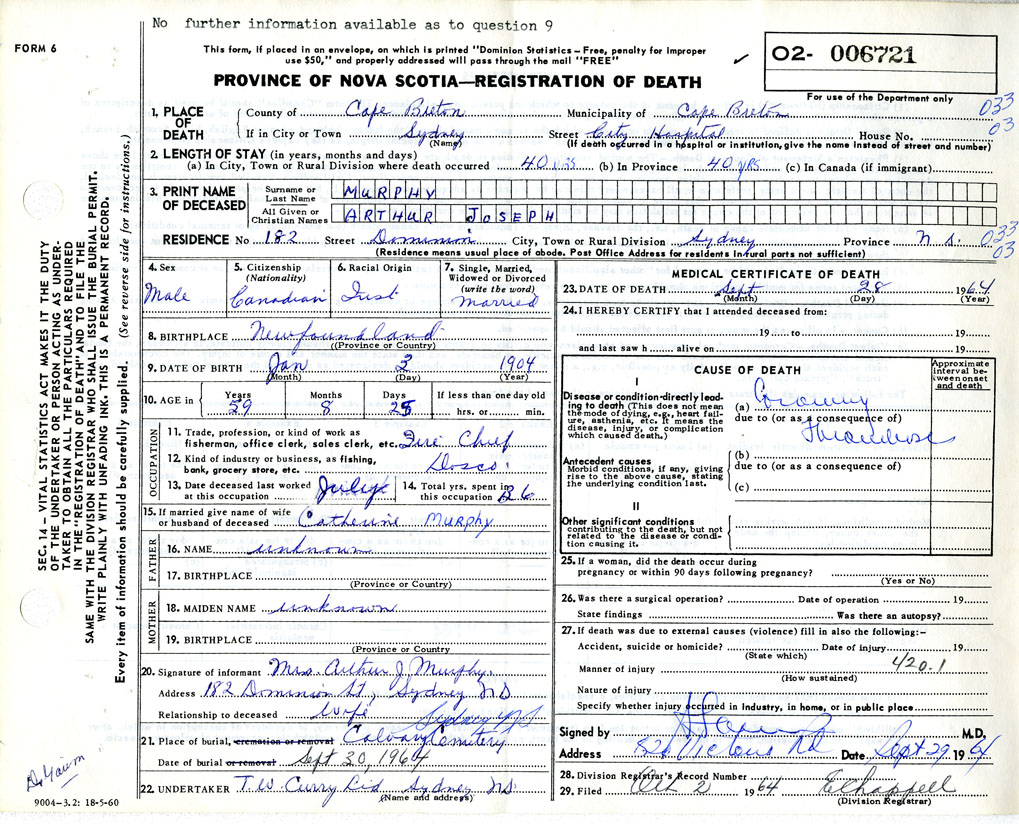 No further information available as to question 9
FORM 6
This form, if placed in an envelope, on which is printed "Dominion Statistics – Free, penalty for improper
use $50," and properly addressed will pass through the mail "FREE"
O2- 006721
PROVINCE OF NOVA SCOTIA—REGISTRATION OF DEATH
For use of the Department only
033
03
1. PLACE OF DEATH { County of Cape Breton Municipality of Cape Breton
If in City or Town Sydney Street City Hospital House No.
(Name) (If death occurred in a hospital or institution, give the name instead of street and number)
2. LENGTH OF STAY (in years, months and days)
(a) In City, Town or Rural Division where death occurred 40 yrs (b) In Province 40 yrs (c) In Canada (if immigrant)
3. PRINT NAME OF DECEASED { Surname or Last Name MURPHY
All Given or Christian Names ARTHUR JOSEPH
RESIDENCE No 182 Street Dominion City, Town or Rural Division Sydney Province N.S. 033
03
(Residence means usual place of abode. Post Office Address for residents in rural parts not sufficient)
4. Sex 5. Citizenship (Nationality) 6. Racial Origin 7. Single, Married, Widowed or Divorced (write the word)
Male Canadian Irish married
8. BIRTHPLACE Newfoundland
(Province or Country)
9. DATE OF BIRTH Jan 1904
(Month) (Day) (Year)
10. AGE in { Years Months Days If less than one day old
59 8 hrs. or min.
OCCUPATION
11. Trade, profession, or kind of work as
fisherman, office clerk, sales clerk, etc. Fire Chief
12. Kind of industry or business, as fishing,
bank, grocery store, etc. Dosco
13. Date deceased last worked at this occupation July 14. Total yrs. spent in this occupation 36
15. If married give name of wife
or husband of deceased Catherine Murphy
FATHER
16. NAME unknown
17. BIRTHPLACE
(Province or Country)
MOTHER
18. MAIDEN NAME unknown
19. BIRTHPLACE
(Province or Country
20. Signature of informant Mrs. Arthur J. Murphy
Address 182 Dominion St., Sydney NS
Relationship to deceased wife Sydney NS
21. Place of burial, cremation or removal Calvary Cemitery
Date of burial or removal. Sept 30, 1964
22. UNDERTAKER T.W. Curry Ltd Sydney NS.
(Name and address)
9004–3.2: 18-5-60
MEDICAL CERTIFICATE OF DEATH
23. DATE OF DEATH Sept 28 1964
(Month) (Day) (Year)
24. I HEREBY CERTIFY that I attended deceased from:
19 to 19
and last saw h alive on 19
CAUSE OF DEATH
Approximate interval between onset and death
I
Disease or condition directly leading to death (This does not mean the mode of dying, e.g., heart failure, asthenia, etc. It means the disease, injury, or complication which caused death.)
(a) Coronary
due to (or as a consequence of)
Thrombosis
Antecedent causes
Morbid conditions, if any, giving rise to the above cause, stating the underlying condition last.
(b)
due to (or as a consequence of)
(c)
II
Other significant conditions
contributing to the death, but not related to the disease or condition causing it.
25. If a woman, did the death occur during
pregnancy or within 90 days following pregnancy?
(Yes or No)
26. Was there a surgical operation? Date of operation 19
State findings Was there an autopsy?
27. If death was due to external causes (violence) fill in also the following:–
Accident, suicide or homicide? Date of injury 19
(State which)
Manner of injury 420.1
(How sustained)
Nature of injury
Specify whether injury occurred in industry, in home, or in public place
Signed by M.D.
Address Rd Date Sept 29 1964
28. Division Registrar's Record Number
29. Filed Oct 2 1964 EChappell
(Division Registrar)
SEC. 14 – VITAL STATISTICS ACT MAKES IT THE DUTY
OF THE UNDERTAKER OR PERSON ACTING AS UNDER-
TAKER TO OBTAIN ALL THE PARTICULARS REQUIRED
IN THE "REGISTRATION OF DEATH" AND TO FILE THE
SAME WITH THE DIVISION REGISTRAR WHO SHALL ISSUE THE BURIAL PERMIT.
WRITE PLAINLY WITH UNFADING INK. THIS IS A PERMANENT RECORD.
Every item of information should be carefully supplied. (See reverse side for instructions.)